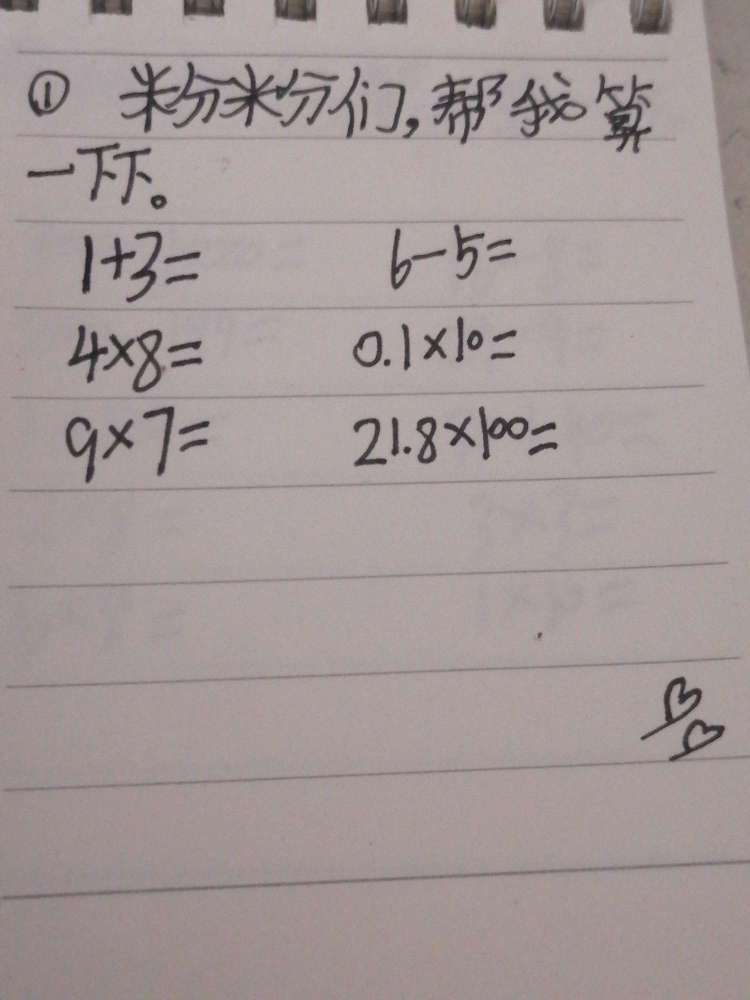 ① 粉粉们,帮我算
一下下。
1+3= 6-5=
4×8= 0.1×10=
9×7= 21.8×100=